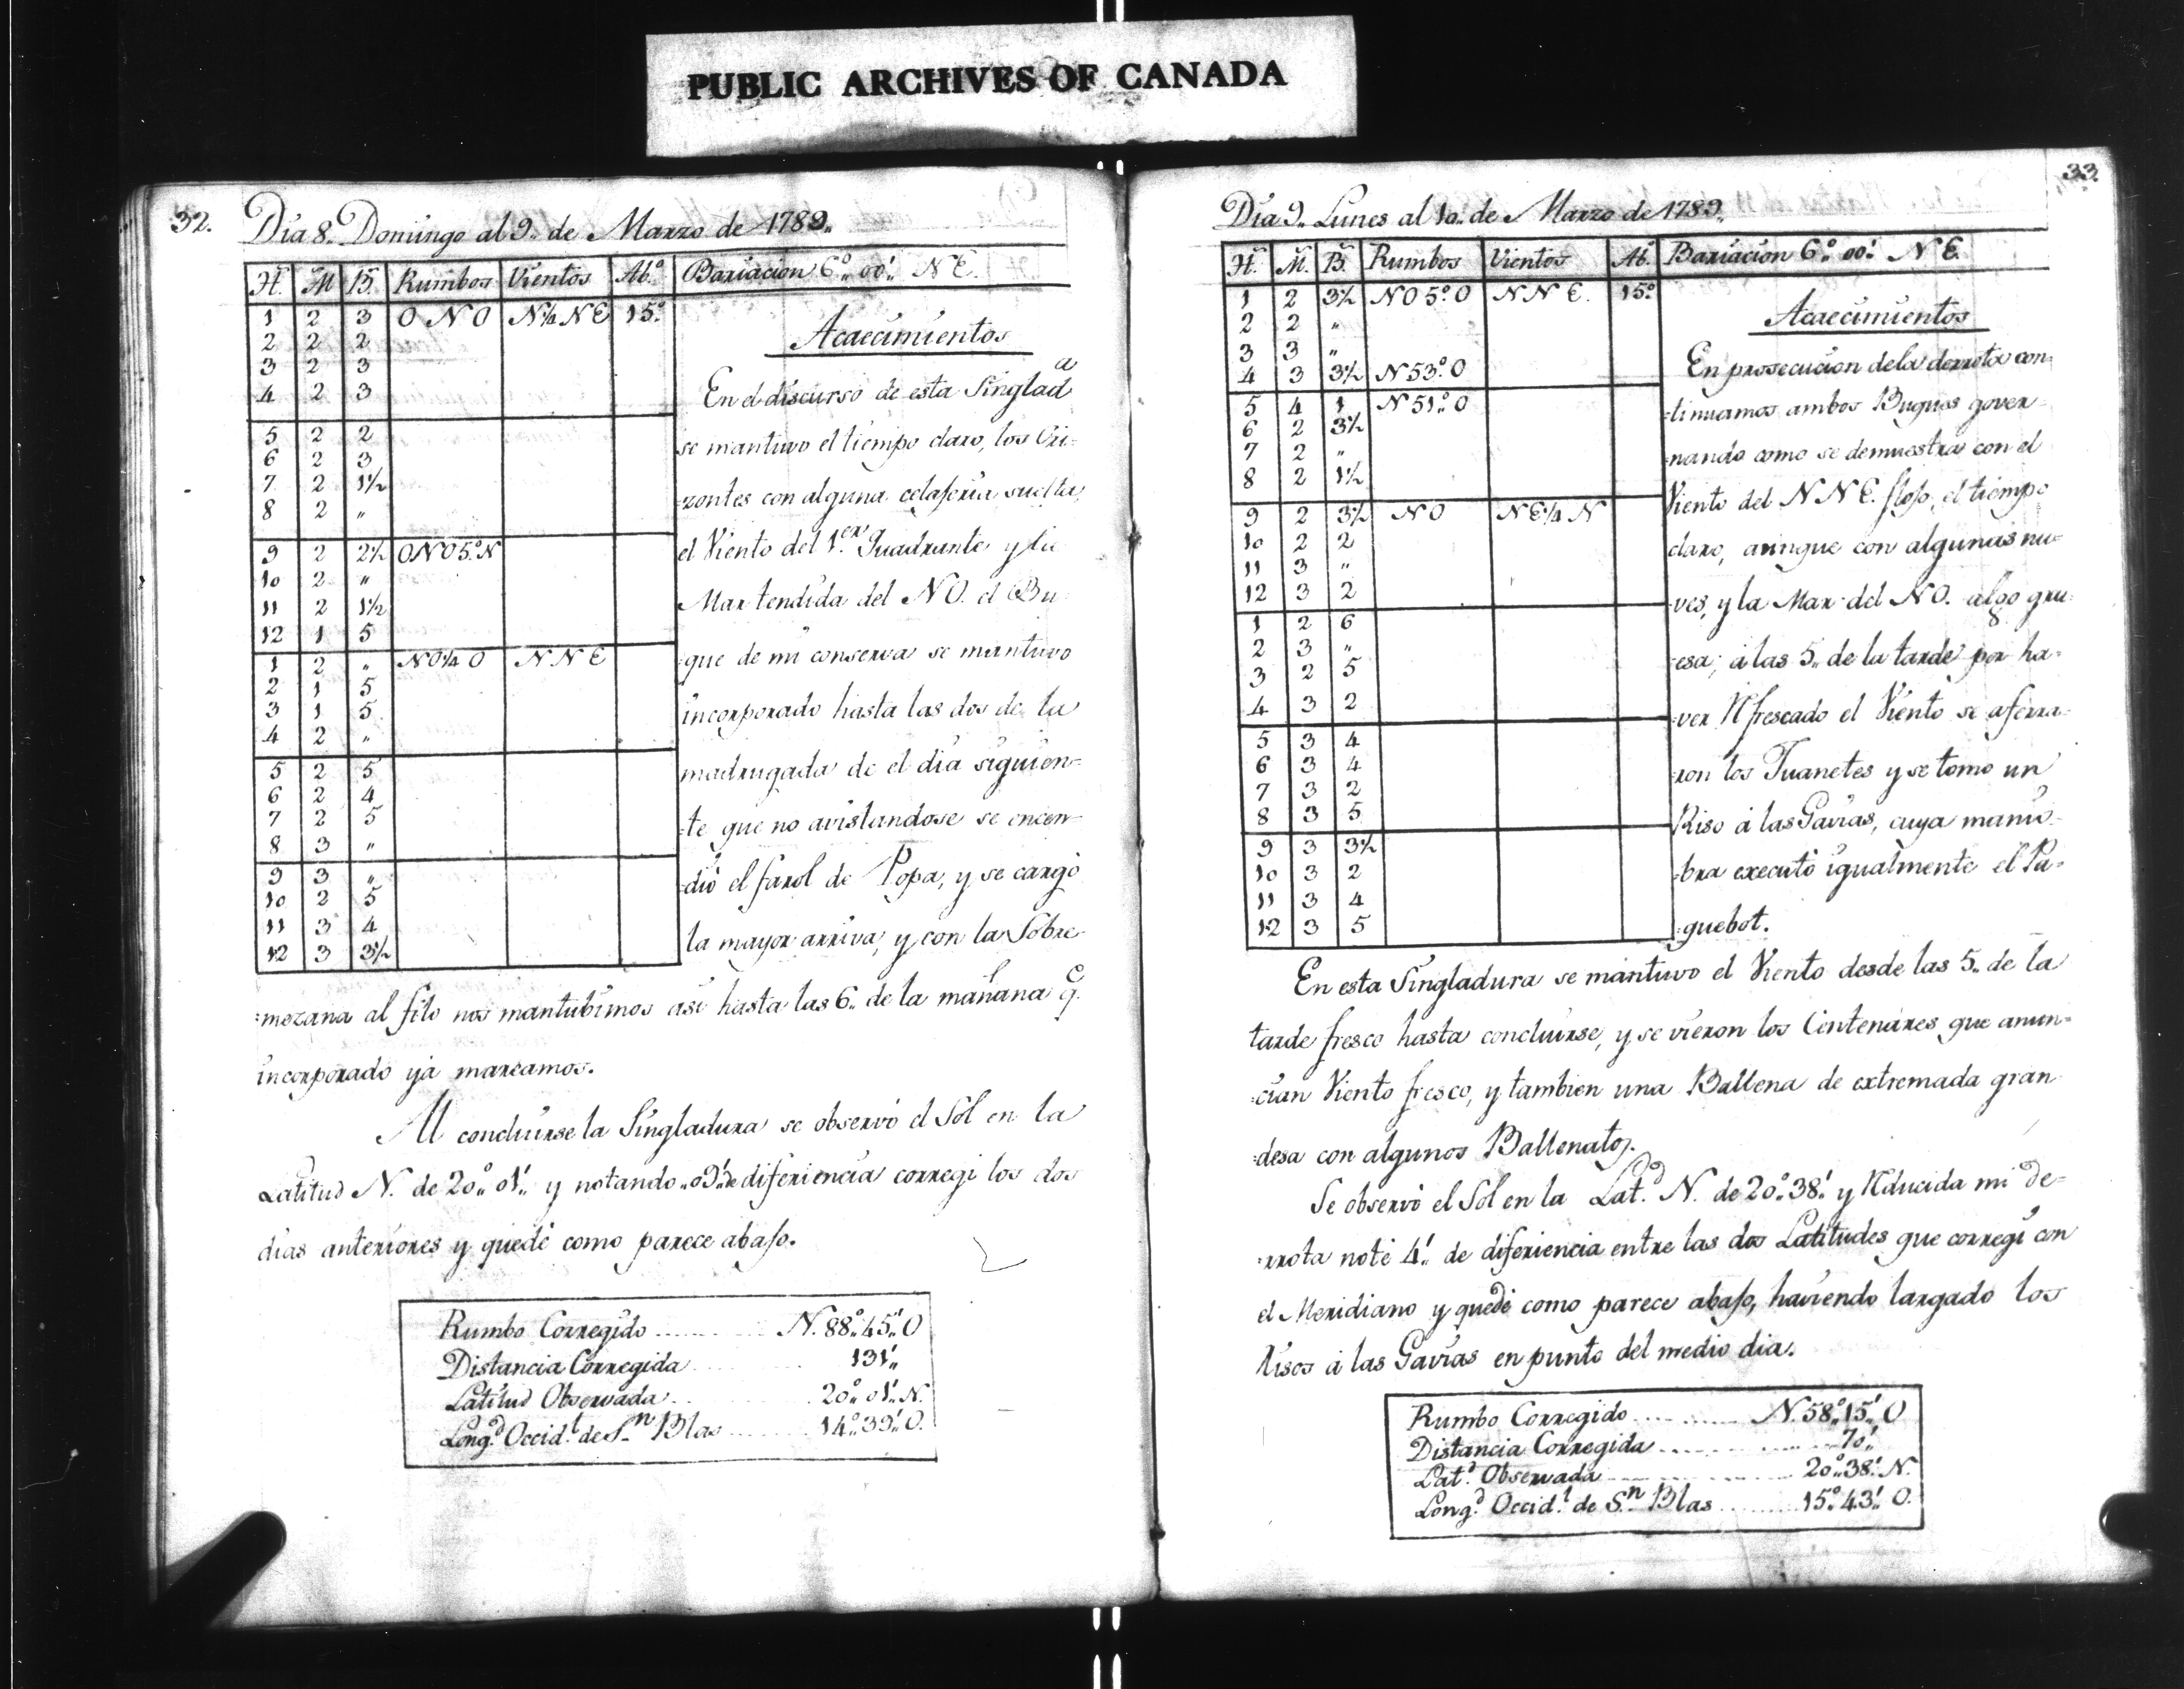 PUBLIC ARCHIVES OF CANADA
32.
Dia 8,, Domingo al 9,, de Marzo de 1789,,
H. M B. Rumbos Vientos Ab.º Bariacion 6º,, 00',, N E.
1 2 3 O N O N¼ N E 15º
2 2 2
3 2 3
4 2 3
5 2 2
6 2 3
7 2 1½
8 2 ,,
9 2 2½ O N O 5º N
10 2 ,,
11 2 1½
12 1 5
1 2 ,, N O ¼ O N N E
2 1 5
3 1 5
4 2 ,,
5 2 5
6 2 4
7 2 5
8 3 ,,
9 3 ,,
10 2 5
11 3 4
12 3 3½
Acaecimientos
En el discurso de esta Singlad.a
se mantuvo el tiempo claro, los Ori=
=zontes con alguna celaferia suelta,
el Viento del 1.er Quadrante y la
Mar tendida del N O. el Bu=
=que de mi conserva se mantuvo
incorporado hasta las dos de la
madrugada de el dia siguien=
=te que no avistandose se encen=
=dió el farol de Popa, y se cargó
la mayor arriva, y con la Sobre=
=mezana al filo nos mantubimos asi hasta las 6,, de la mañana q.e
incorporado ya mareamos.
Al concluirse la Singladura se observó el Sol en la
Latitud N. de 20º,, 01',, y notando ,,09',, de diferiencia corregi los dos
dias anteriores y quedé como parece abaso.
Rumbo Corregido ........ N. 88º,, 45',, O
Distancia Corregida ........ 131',,
Latitud Observada ........ 20º,, 01',, N.
Long.d Occid.l de S.n Blas ........ 14º,, 39',, O.
33.
Dia 9,, Lunes al 10,, de Marzo de 1789,,
H. M. B. Rumbos Vientos Ab. Bariacion 6º,, 00',, N E.
1 2 3½ N O 5º O N N E. 15º
2 2 ,,
3 3 ,,
4 3 3½ N 53º O
5 4 1 N 51º O
6 2 3½
7 2 ,,
8 2 1½
9 2 3½ N O N E ¼ N
10 2 2
11 3 ,,
12 3 2
1 2 6
2 3 ,,
3 2 5
4 3 2
5 3 4
6 3 4
7 3 2
8 3 5
9 3 3½
10 3 2
11 3 4
12 3 5
Acaecimientos
En prosecucion de la derrota con=
=tinuamos ambos Buques gover=
=nando como se demuestra con el
Viento del N N E. floso, el tiempo
claro, aunque con algunas nu=
=ves, y la Mar del N O. algo gru=
=esa; á las 5,, de la tarde por ha=
=ver Rfrescado el Viento se aferra=
=ron los Juanetes y se tomo un
Riso á las Gavias, cuya manio=
=bra executó igualmente el Pa=
=quebot.
En esta Singladura se mantuvo el Viento desde las 5,, de la
tarde fresco hasta concluirse, y se vieron los Centenares que anun=
=cian Viento fresco, y tambien una Ballena de extremada gran=
=desa con algunos Ballenatos.
Se observó el Sol en la Lat.d N. de 20º,, 38',, y Rducida mi de=
=rrota noté 4',, de diferiencia entre las dos Latitudes que corregi con
el Meridiano y quedé como parece abaso, haviendo largado los
Risos á las Gavias en punto del medio dia.
Rumbo Corregido ........ N. 58º,, 15',, O
Distancia Corregida ........ 70',,
Lat.d Observada ........ 20º,, 38',, N.
Long.d Occid.l de S.n Blas ........ 15º,, 43',, O.